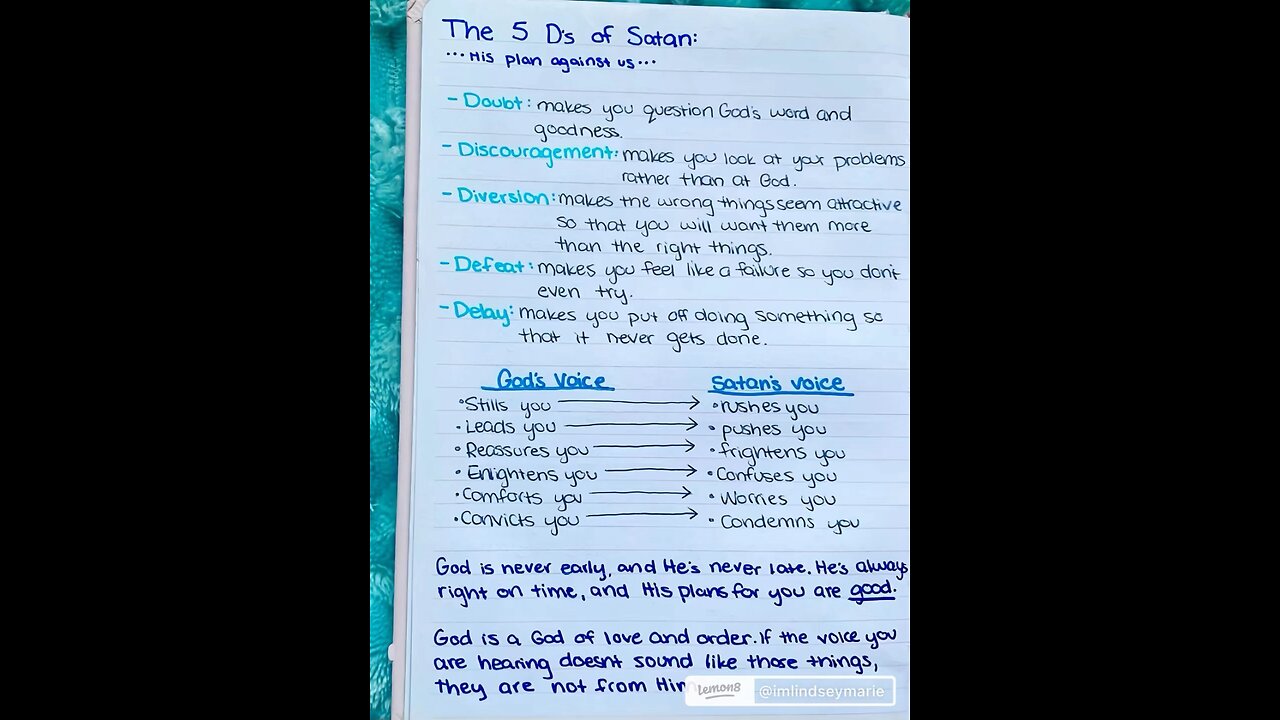 The 5 D's of Satan:
...His plan against us...
- Doubt: makes you question God's word and
goodness.
- Discouragement: makes you look at your problems
rather than at God.
- Diversion: makes the wrong things seem attractive
so that you will want them more
than the right things.
- Defeat: makes you feel like a failure so you don't
even try.
- Delay: makes you put off doing something so
that it never gets done.
God's Voice Satan's voice
• Stills you → • rushes you
• Leads you → • pushes you
• Reassures you → • frightens you
• Enlightens you → • Confuses you
• Comforts you → • Worries you
• Convicts you → • Condemns you
God is never early, and He's never late. He's always
right on time, and His plans for you are good.
God is a God of love and order. If the voice you
are hearing doesn't sound like those things,
they are not from Him
Lemon8 @imlindseymarie